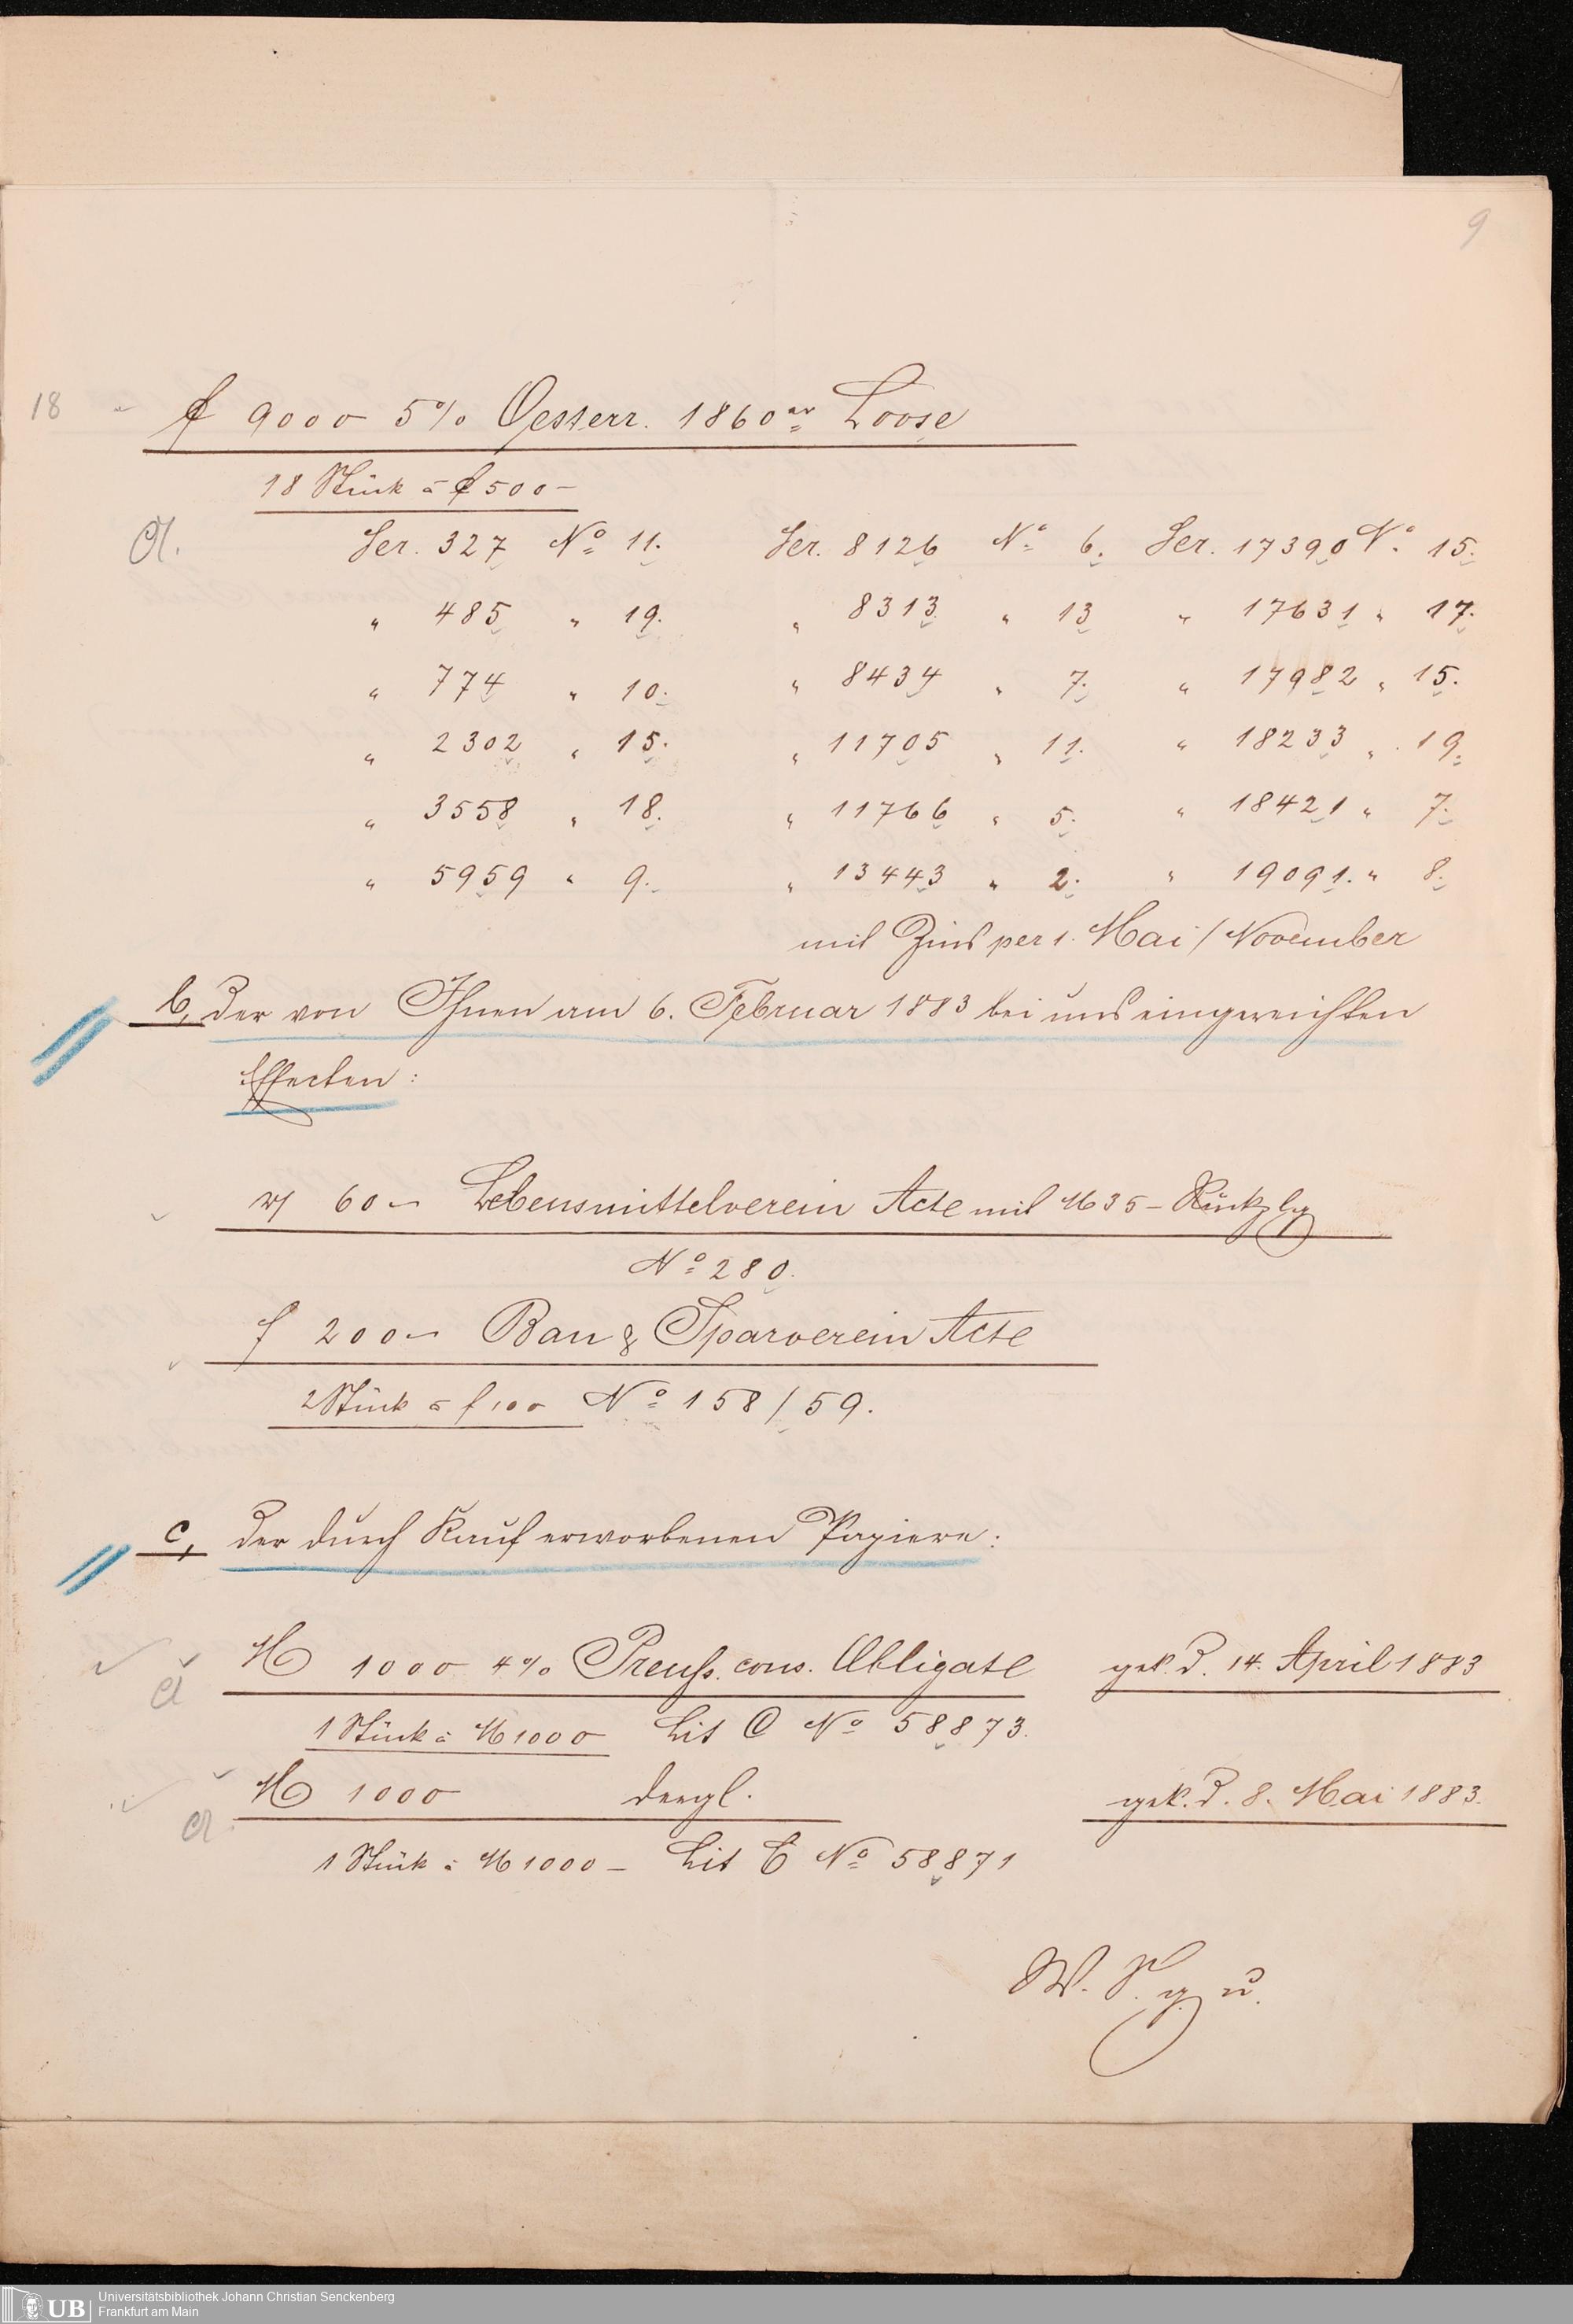 9
18 fl 9000 5% Oesterr. 1860er Loose
18 Stück à fl 500 –
a. Ser. 327 No 11. Ser. 8126 No 6. Ser. 17390 No 15.
" 485 " 19. " 8313 " 13 " 17631 " 17.
" 774 " 10. " 8434 " 7. " 17982 " 15.
" 2302 " 15. " 11705 " 11. " 18233 " 19.
" 3558 " 18. " 11766 " 5. " 18421 " 7.
" 5959 " 9. " 13443 " 2. " 19091. " 8.
mit Zins per 1. Mai / November
b, der von Ihnen am 6. Februar 1883 bei uns eingereichten
Effecten:
60 – Lebensmittelverein Acte mit M 35 – Rückzlg
No 280.
f 200 – Bau & Sparverein Acte
2 Stück à f 100 No 158/59.
c, der durch Kauf erworbenen Papiere:
M 1000 4% Preuss. cons. Obligate gek. d. 14. April 1883
a 1 Stück à M 1000 Lit C No 58873.
M 1000 dergl. gek. d. 8. Mai 1883.
a 1 Stück à M 1000 – Lit C No 58871
UB
Universitätsbibliothek Johann Christian Senckenberg
Frankfurt am Main